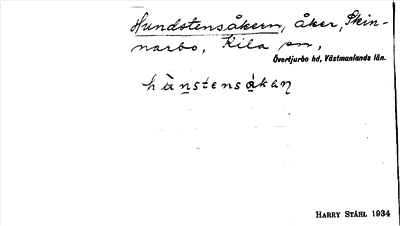 Hundstensåkern, åker, Skin-
narbo, Kila sn,
Övertjurbo hd, Västmanlands län.
hànstensåkaɳ
HARRY STÅHL 1934